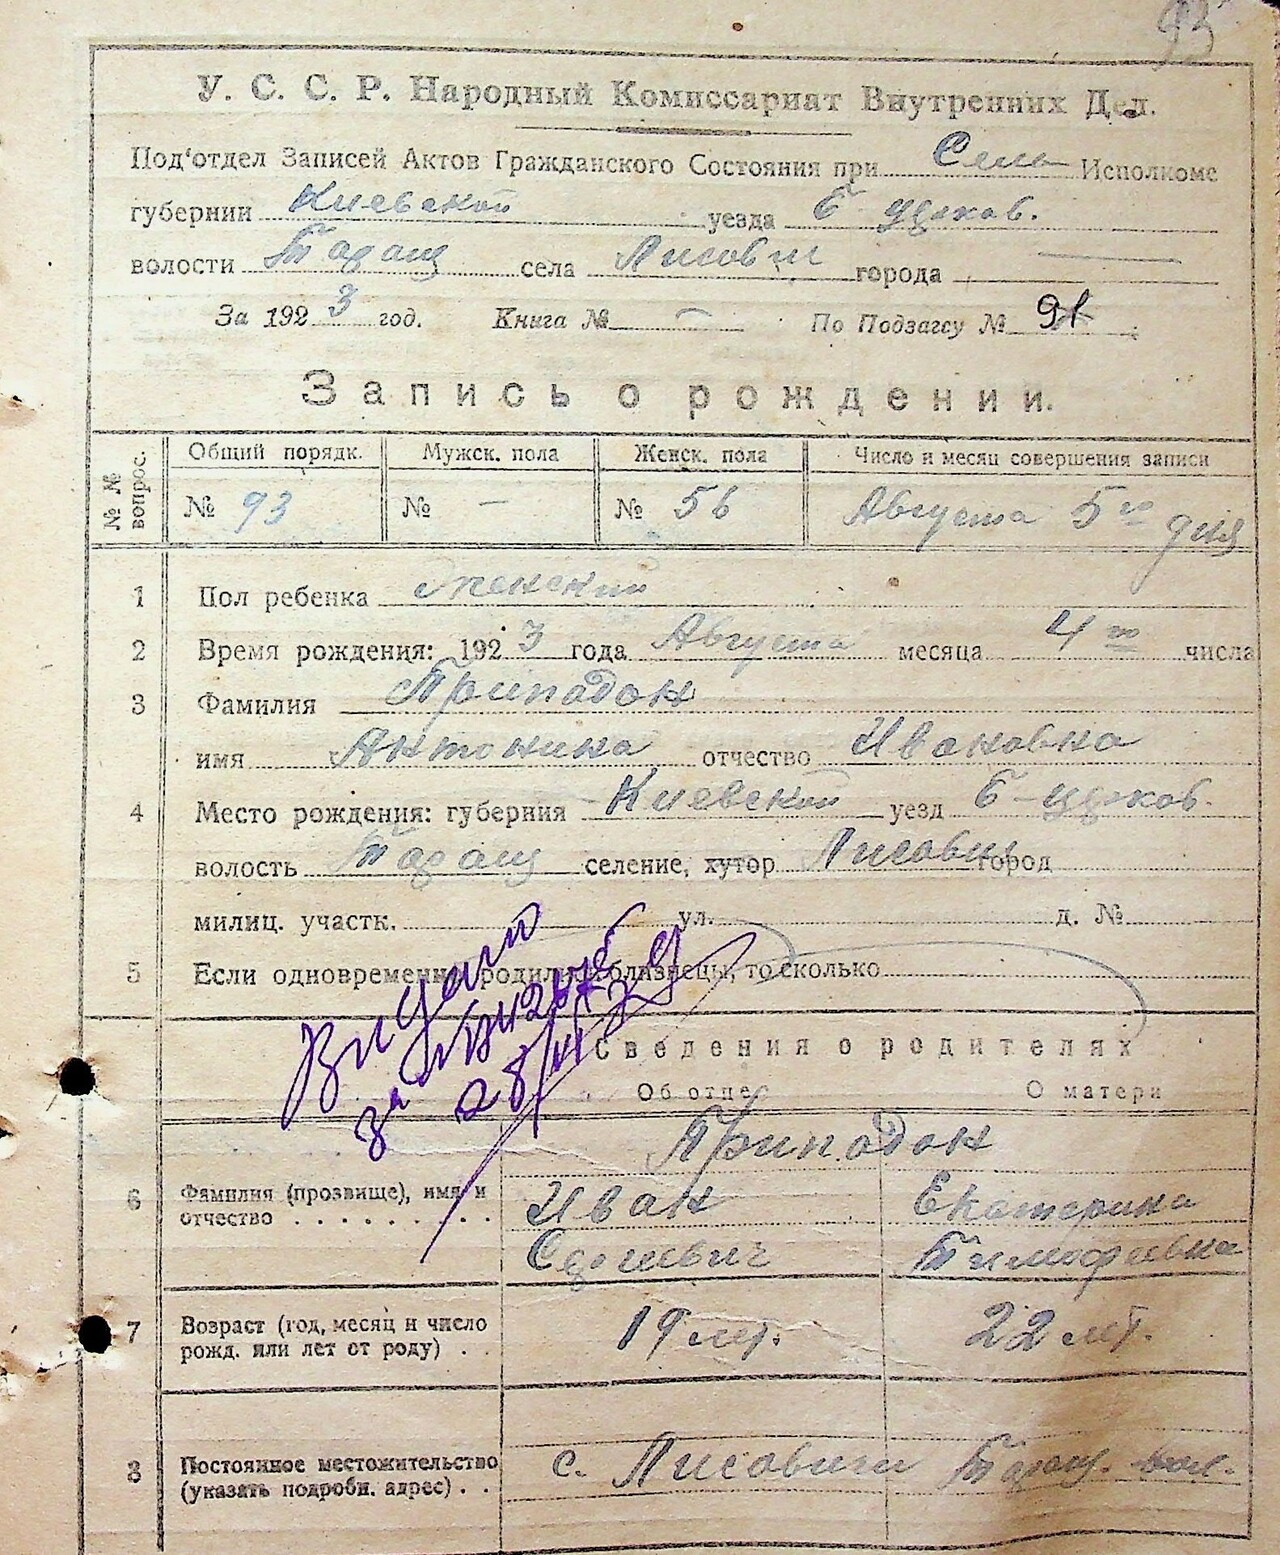 93
У. С. С. Р. Народный Комиссариат Внутренних Дел.
Под'отдел Записей Актов Гражданского Состояния при Сель Исполкоме
губернии Киевской уезда Б-церков.
волости Таращ села Лисович города —
За 1923 год. Книга № — По Подзагсу № 91
Запись о рождении.
№ № вопрос.
Общий порядк. Мужск. пола Женск. пола Число и месяц совершения записи
№ 93 № — № 56 Августа 5го дня
1 Пол ребенка Женский
2 Время рождения: 1923 года Августа месяца 4го числа
3 Фамилия Припадон
имя Антонина отчество Ивановна
4 Место рождения: губерния Киевской уезд Б-церков.
волость Таращ селение, хутор Лисович город
милиц. участк. ул. д. №
5 Если одновременно родились близнецы, то сколько
Видано
за №
28/
Сведения о родителях
Об отце О матери
Припадон
6 Фамилия (прозвище), имя и отчество . . . . . . . . .
Иван Екатерина
Сергеевич Тимофеевна
7 Возраст (год, месяц и число рожд. или лет от роду) . .
19 лет. 22 лет.
8 Постоянное местожительство (указать подробн. адрес) . .
с. Лисовичи Таращ. вол.